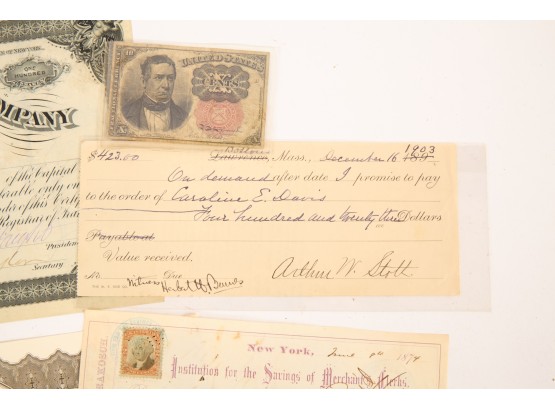 OF NEW YORK.
ONE HUNDRED
COMPANY
of the Capital
only on
of this Certif
Registrar of
President
Secretary
10 UNITED STATES
X
CENTS
$423.00 Lawrence, Mass., December 16 1903
On demand after date I promise to pay
to the order of Caroline E. Davis
Four hundred and twenty three Dollars
Payable at
Value received.
No. Due Arthur W. Stott
Witness Herbert H. Barnes
New York, June 1874
Institution for the Savings of Merchants' Clerks.